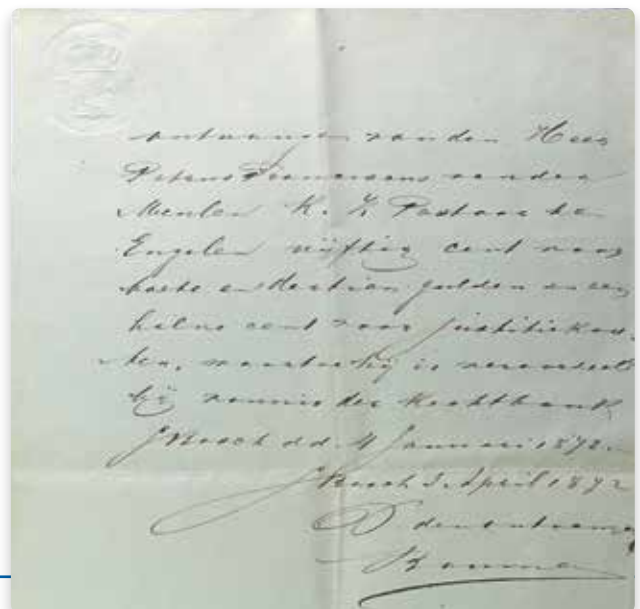 ontvangen van den Heer
Petrus Franciscus van der
Meulen R. K. Pastoor te
Engelen vijftig cent voor
boete en dertien gulden en een
halve cent voor justitiekos-
ten, waartoe hij is veroordeeld
bij vonnis der Rechtbank
's Bosch d.d. 4 Januari 1872.
's Bosch 3 April 1872
D' ontvanger